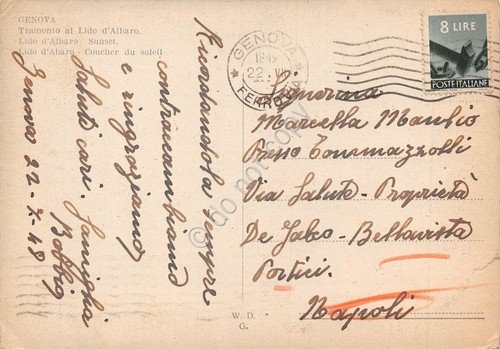 GENOVA
Tramonto al Lido d'Albaro.
Lido d'Albaro Sunset.
Lido d'Albaro - Coucher du soleil
Ricordandola sempre
contraccambiamo
e ringraziamo
Saluti cari. Famiglia
Bobbio
Genova 22-7-48
GENOVA
22.VII
FERROVIA
8 LIRE
POSTE ITALIANE
Signorina
Marcella Manlio
Presso Tommazzolli
Via Salute - Proprietà
De Falco - Bellavista
Portici.
Napoli
W. D.
G.
do not copy